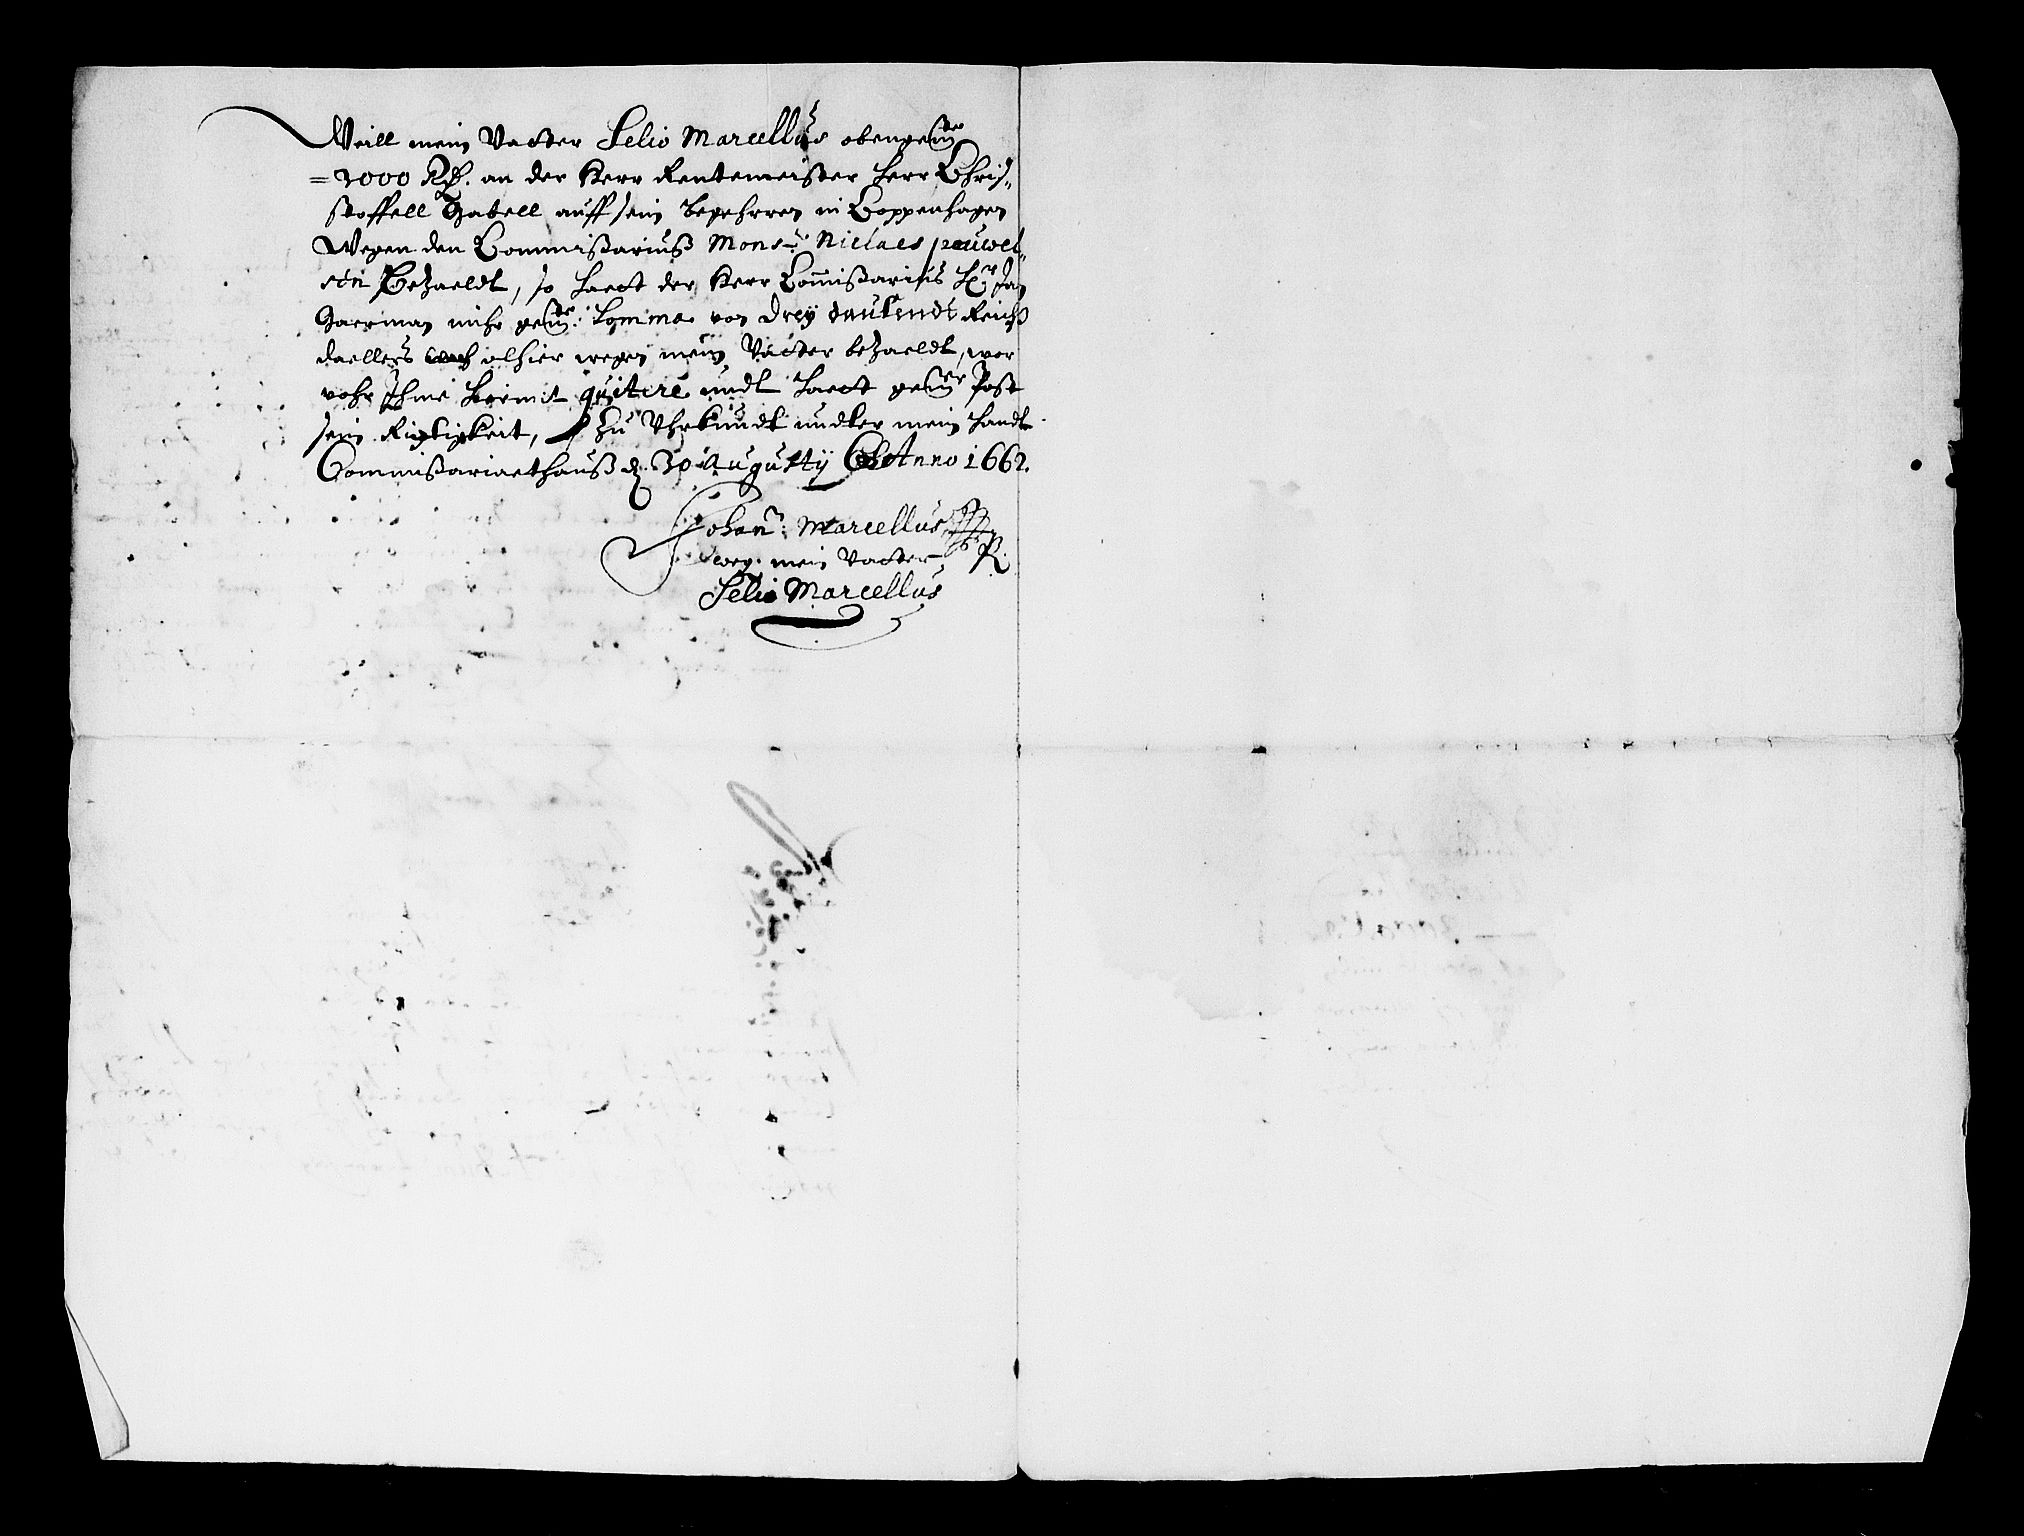 Weill mein Vatter Selio Marcellus obengemte
= 3000 Rh. an der Herr Rentemeister Herr Chris„
stoffell Gabell auff sein begehren in Coppenhagen
Wegen den Commissariuss Monsr: Niclaes pauwel„
sen Bezaeldt, so haett der Herr Commissarius Hr: Jan
Gaerman mihr gemte: Somma von drey dausendt Reichs
daellers alhier wegen mein Vatter bezaeldt, wor
vohr Ihme hiermit quitire undt haett gemte Post
sein Rigtigkeit, Zu Uhrkundt undter mein handt
Commissariaethauss d. 30 Augustij Anno 1662.
Johan: Marcellus
weg. mein Vatter
Selio Marcellus